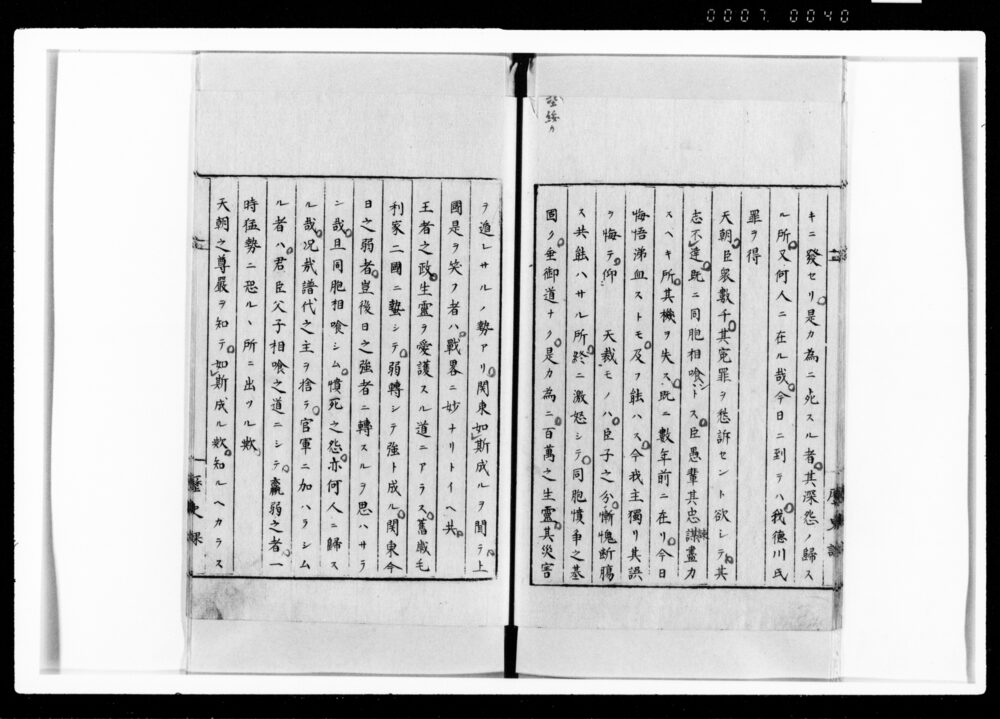 0007 0040
キニ發セリ是カ為ニ死スル者其深怨ノ歸ス
ル所又何人ニ在ル哉今日ニ到テハ我德川氏
罪ヲ得
天朝臣衆數千其冤罪ヲ愁訴セント欲シテ其
志不達既ニ同胞相喰シトス臣愚輩其忠謀盡力
諫
スヘキ所其機ヲ失ス既ニ數年前ニ在リ今日
悔悟涕血ストモ及フ能ハス今我主獨リ其誤
ヲ悔テ仰 天裁モノハ臣子之分慚愧断膓
ス共能ハサル所終ニ激怒シテ同胞憤争之基
固ク垂御道ナク是カ為ニ百萬之生靈其災害
歴史課
ヲ遁レサルノ勢アリ関東如斯成ルヲ聞テ上
國是ヲ笑フ者ハ戰畧ニ妙ナリトイヘ共
王者之政生靈ヲ愛護スル道ニアラス舊戚毛
利家二國ニ蟄シテ弱轉シテ強ト成ル関東今
日之弱者豈後日之強者ニ轉スルヲ思ハサラ
ン哉且同胞相喰シム憤死之怨亦何人ニ歸ス
ル哉况哉譜代之主ヲ捨ラ官軍ニ加ハラシム
ル者ハ君臣父子相喰之道ニシテ羸弱之者一
時猛勢ニ恐ルヽ所ニ出ツル歟
天朝之尊嚴ヲ知テ如斯成ル歟知ルヘカラス
歴史課